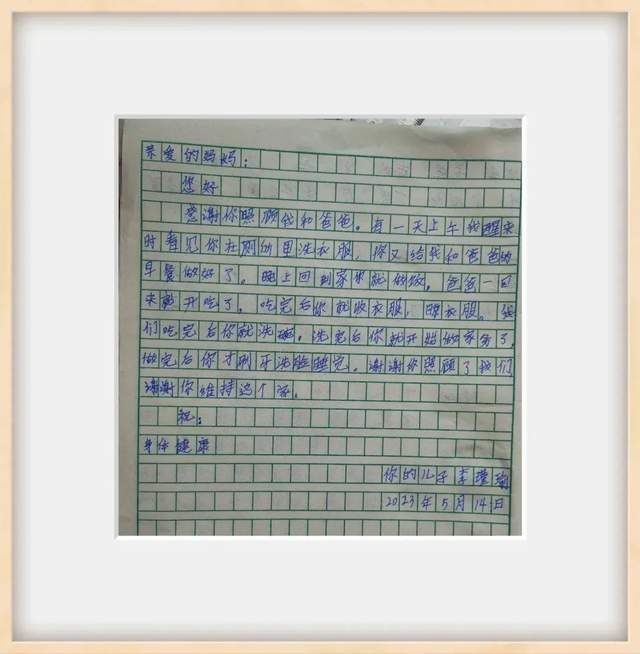 亲爱的妈妈:
您好
感谢你照顾我和爸爸。有一天上午我醒来
时看见你在厕所里洗衣服,你又给我和爸爸的
早餐做好了。晚上回到家你就做饭。爸爸一回
来就开吃了。吃完后你就收衣服,晾衣服。我
们吃完后你就洗碗。洗完后你就开始做家务了,
做完后你才刷牙洗脸睡完。谢谢你照顾了我们
谢谢你维持这个家。
祝:
身体健康
你的儿子李
2023年5月14日